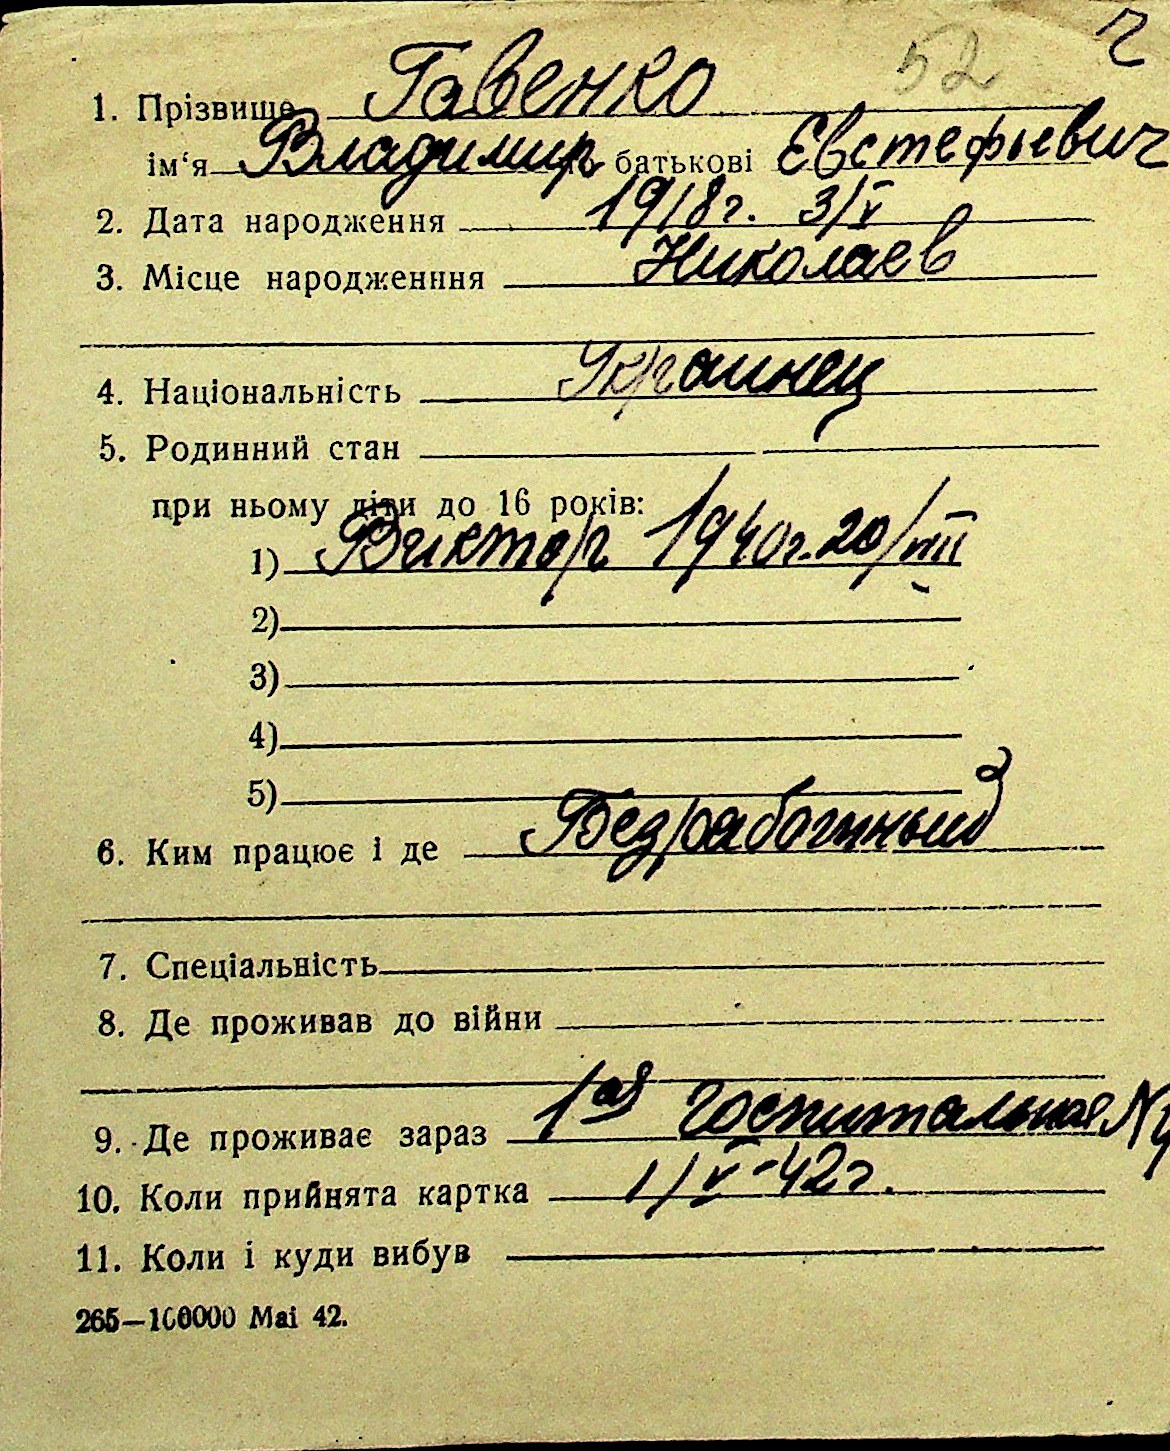 52 г
1. Прізвище Гавенко
ім‘я Владимир по батькові Евстефьевич
2. Дата народження 1918г. 3/V
3. Місце народженння Николаев
4. Національність Украинец
5. Родинний стан
при ньому діти до 16 років:
1) Виктор 1940г. 20/VIII
2)
3)
4)
5)
6. Ким працює і де Безработный
7. Спеціальність
8. Де проживав до війни
9. Де проживає зараз 1ая Госпитальная N
10. Коли прийнята картка 1/V-42г.
11. Коли і куди вибув
265—100000 Mai 42.